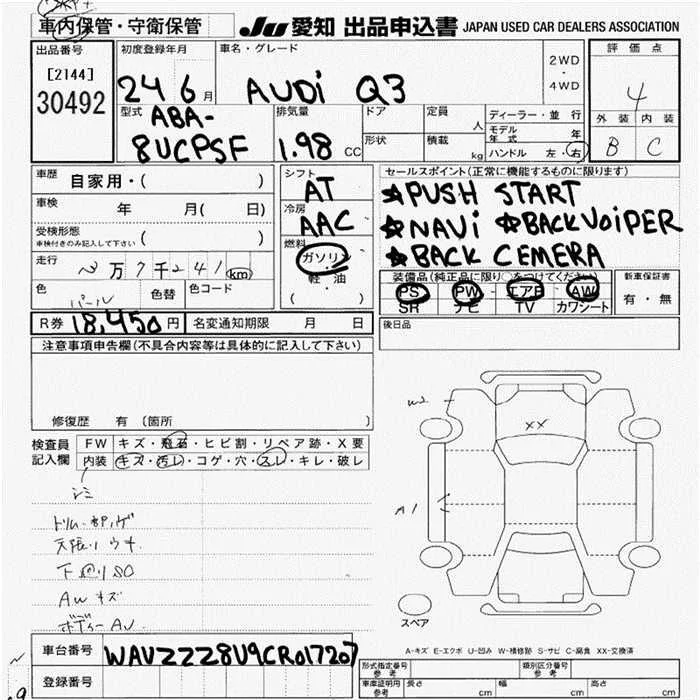 車内保管・守衛保管
JU 愛知 出品申込書 JAPAN USED CAR DEALERS ASSOCIATION
出品番号
[2144]
30492
初度登録年月
24 6 月
車名・グレード
AUDi Q3
2WD
・
4WD
評価点
4
外装 内装
B C
型式
ABA-
8UCPSF
排気量
1.98 CC
ドア
定員
人
形状
積載
kg
ディーラー・並行
モデル年式 年
ハンドル 左・右
車歴
自家用・( )
車検
年 月( 日)
受検形態
車検付きのみ記入して下さい ( )
走行
万7千241 km
色
パール
色替
色コード
シフト
AT
冷房
AAC
燃料
ガソリン
・
軽油
( )
セールスポイント(正常に機能するものに限ります)
★PUSH START
★NAVi ★BACKVOiPER
★BACK CEMERA
装備品(純正品に限り○をつけてください)
PS PW エアB AW
SR ナビ TV カワシート
新車保証書
有・無
R券 18,450 円
名変通知期限 月 日
後日品
注意事項申告欄(不具合内容等は具体的に記入して下さい)
修復歴 有 〔箇所 〕
検査員
記入欄
FW キズ・飛石・ヒビ割・リペア跡・X要
内装 キズ・汚レ・コゲ・穴・スレ・キレ・破レ
シミ
天張りウキ
AWキズ
W2
XX
A1
スペア
A-キズ E-エクボ U-凹み W-補修跡 S-サビ C-腐食 XX-交換済
車台番号
WAUZZZ8U9CR017207
登録番号
型式指定番号
参考
類別区分番号
参考
車庫証明用
参考
長さ cm
幅 cm
高さ cm